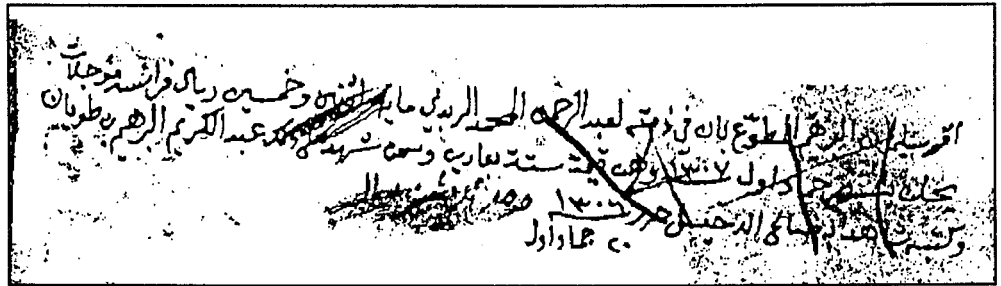 اقر سليمان البرهيم المطوع بان في ذمته لعبد الرحمن المحمد الربدي ماية وخمسين ريال فرانسه مؤجلات
يحلن جماد اول ١٣٠٧ وهن قيمة ستة بعارين وسمن شهد على ذلك عبد الكريم البرهيم بن طويان
وكتبه شاهد به صالح الدخيل حرر ١٣٠٦
٢٠ جماد اول